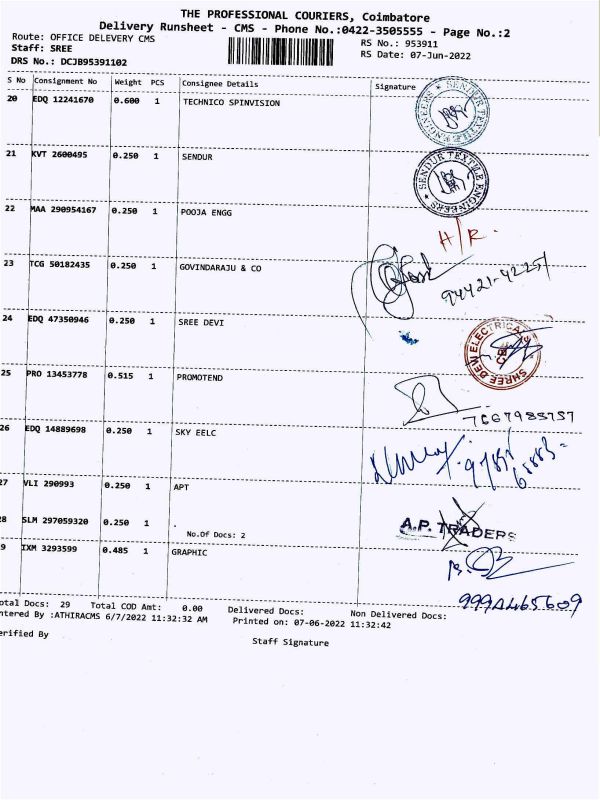 THE PROFESSIONAL COURIERS, Coimbatore
Delivery Runsheet - CMS - Phone No.:0422-3505555 - Page No.:2
Route: OFFICE DELEVERY CMS
RS No.: 953911
Staff: SREE
RS Date: 07-Jun-2022
DRS No.: DCJB95391102
S No Consignment No Weight PCS Consignee Details Signature
20 EDQ 12241670 0.600 1 TECHNICO SPINVISION
SENDUR TEXTILE ENGINEERS
21 KVT 2600495 0.250 1 SENDUR
SENDUR TEXTILE ENGINEERS
22 MAA 290954167 0.250 1 POOJA ENGG
H/R.
23 TCG 50182435 0.250 1 GOVINDARAJU & CO
94421-42251
24 EDQ 47350946 0.250 1 SREE DEVI
SHREE DEVI ELECTRICALS
CBE
25 PRO 13453778 0.515 1 PROMOTEND
26 EDQ 14889698 0.250 1 SKY EELC
27 VLI 290993 0.250 1 APT
28 SLM 297059320 0.250 1 .
No.Of Docs: 2
A.P. TRADERS
9 IXM 3293599 0.485 1 GRAPHIC
otal Docs: 29 Total COD Amt: 0.00 Delivered Docs: Non Delivered Docs:
ntered By :ATHIRACMS 6/7/2022 11:32:32 AM Printed on: 07-06-2022 11:32:42
erified By
Staff Signature